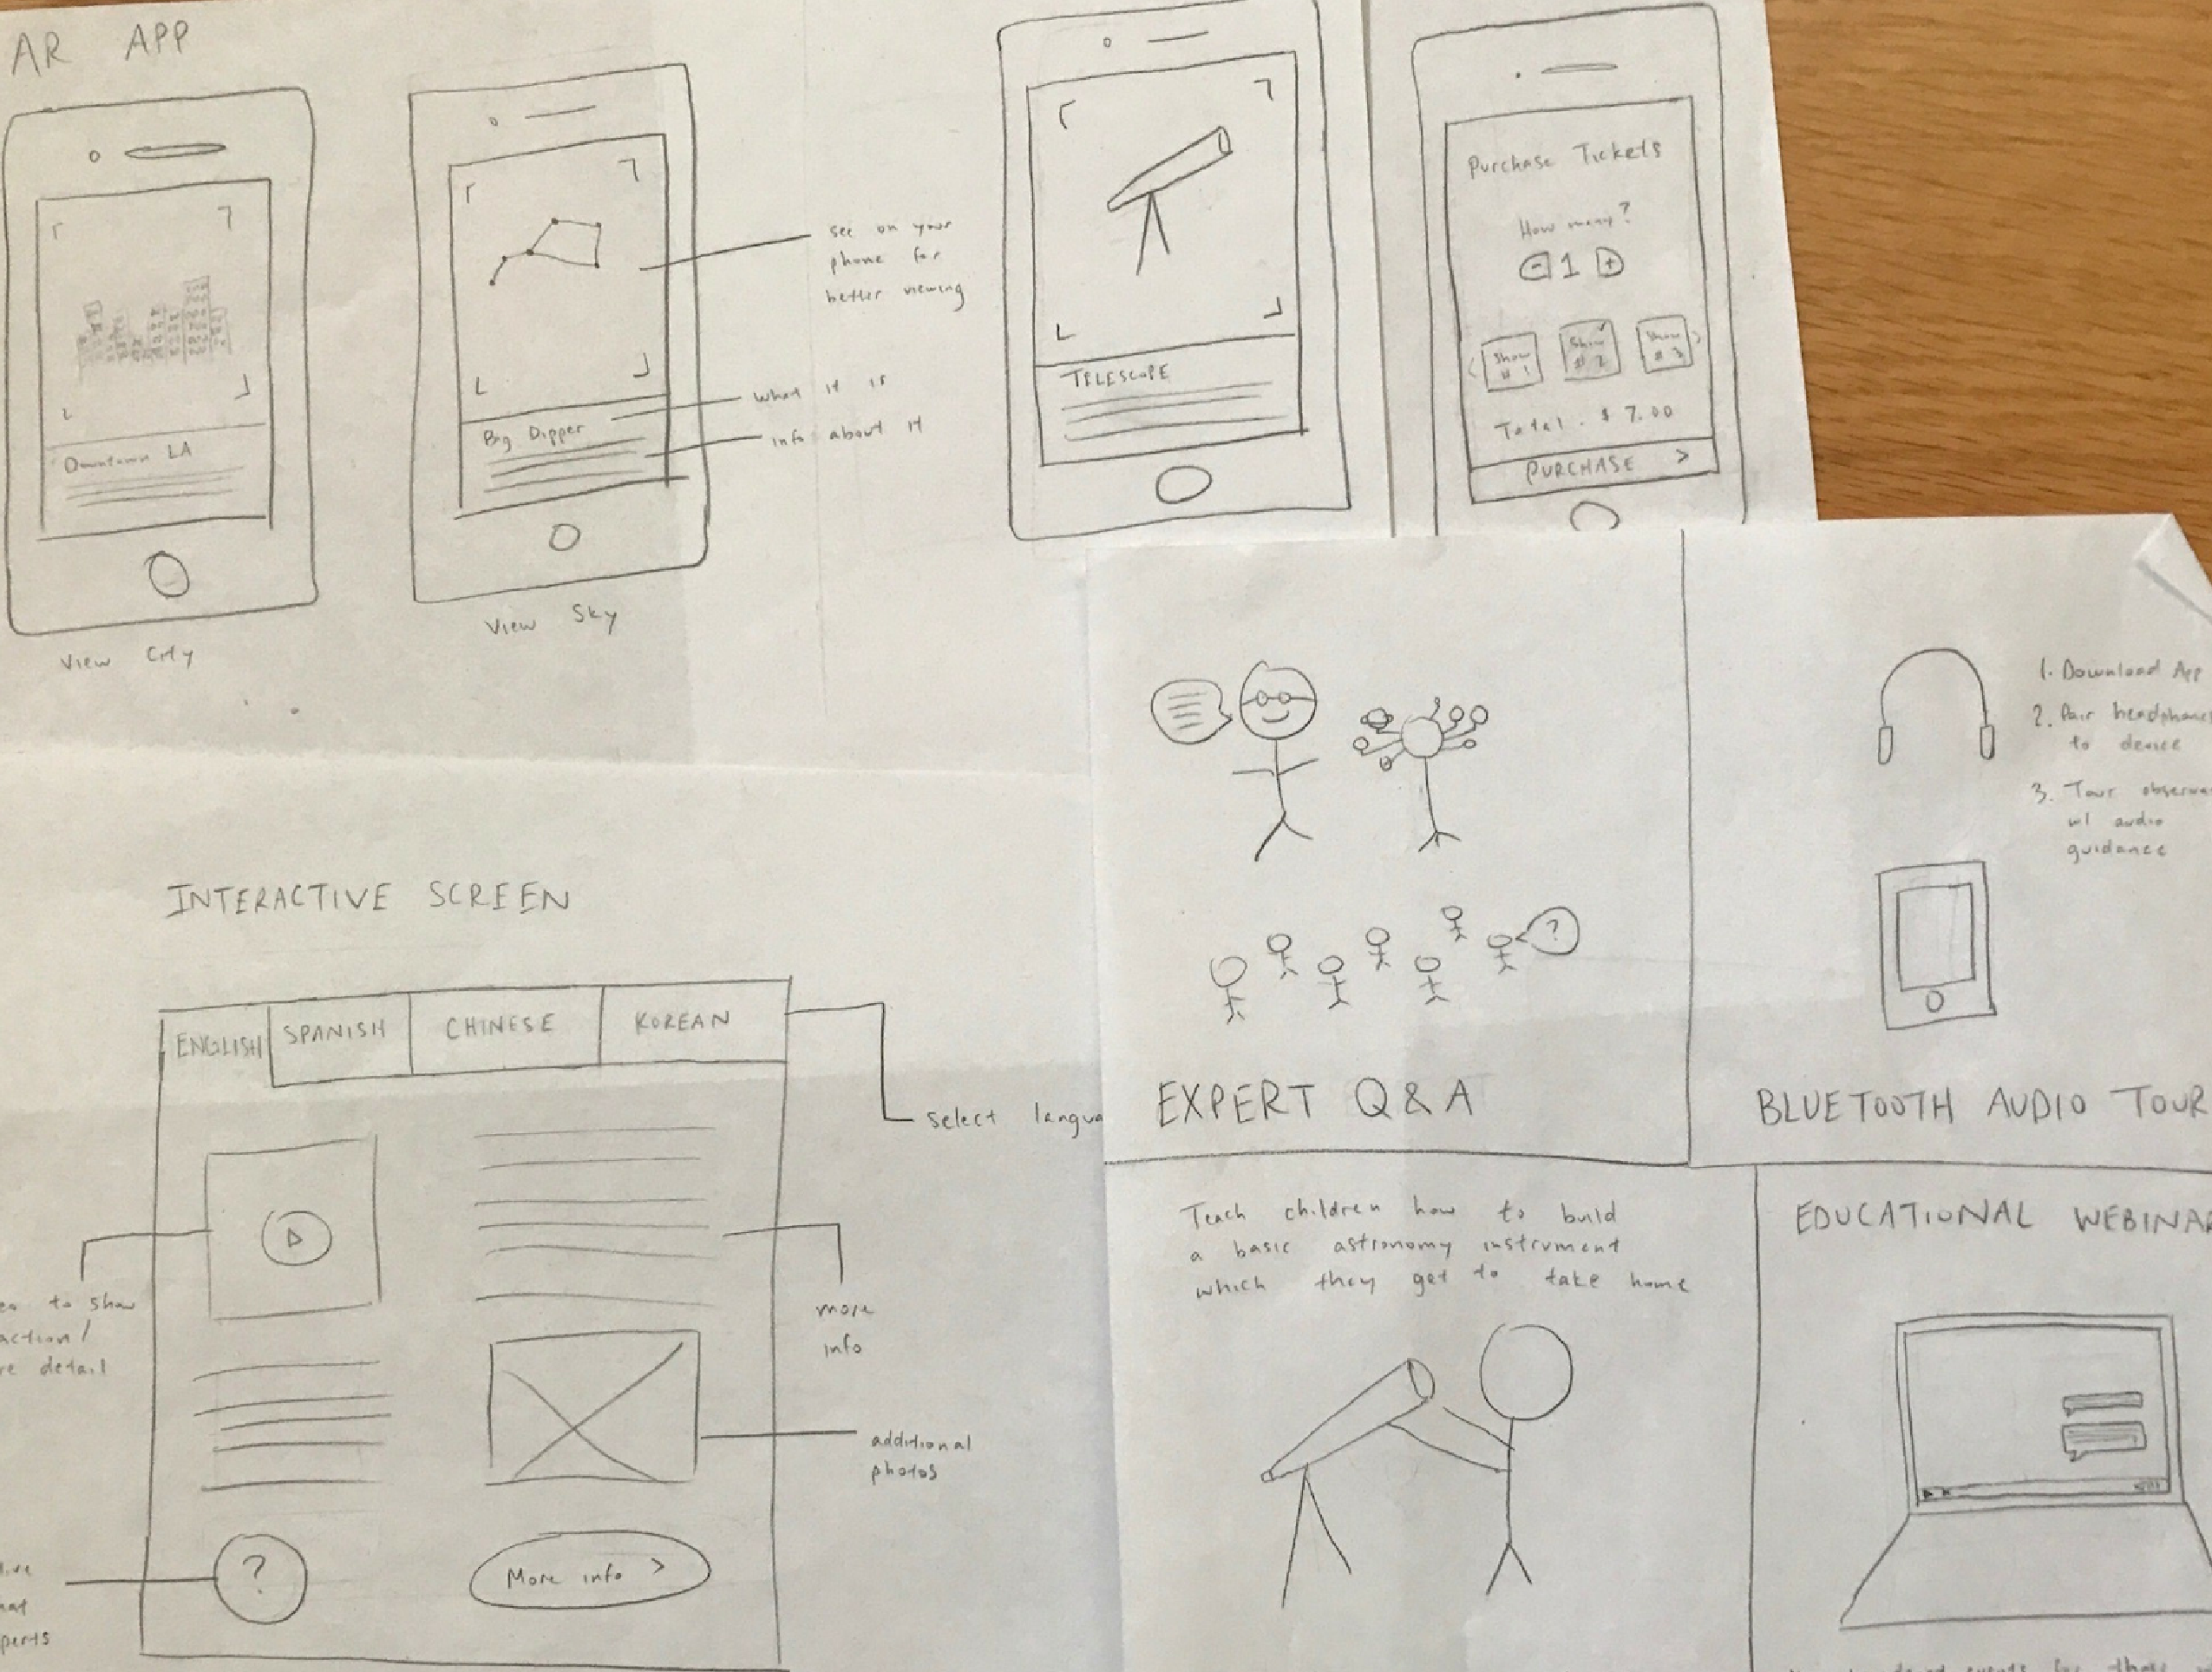 AR APP
Downtown LA
View City
Big Dipper
View Sky
see on your
phone for
better viewing
what it is
info about it
TELESCOPE
Purchase Tickets
How many?
- 1 +
Show # 1
Show # 2
Show # 3
Total: $ 7.00
PURCHASE >
INTERACTIVE SCREEN
ENGLISH SPANISH CHINESE KOREAN
select langua
to show
action/
detail
more
info
additional
photos
?
More info >
?
EXPERT Q & A
1. Download App
2. Pair headphones
to device
3. Tour observa
w/ audio
guidance
BLUETOOTH AUDIO TOUR
Teach children how to build
a basic astronomy instrument
which they get to take home
EDUCATIONAL WEBINAR
events for those